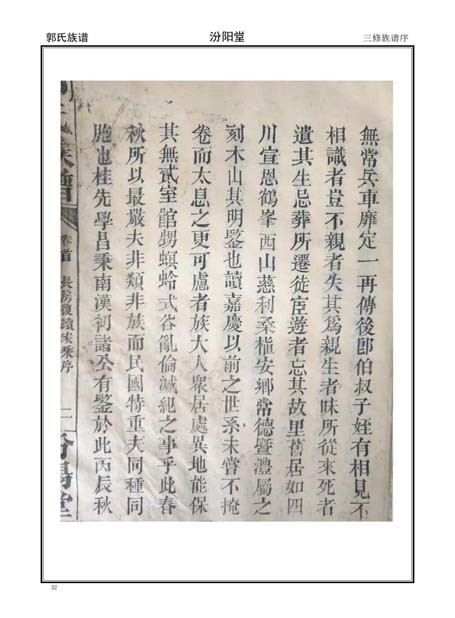 郭氏族谱
汾阳堂
三修族谱序
無常兵車靡定一再傳後卽伯叔子姪有相見不
相識者豈不親者失其爲親生者昧所從來死者
遺其生忌葬所遷徙宦遊者忘其故里舊居如四
川宣恩鶴峯西山慈利桑植安鄉常德暨澧屬之
刻木山其明鑒也讀嘉慶以前之世系未嘗不掩
卷而太息之更可慮者族大人衆居處異地能保
其無貳室館甥螟蛉式谷亂倫滅紀之事乎此春
秋所以最嚴夫非類非族而民國特重夫同種同
胞也桂先學昌乘南漢初諸公有鑒於此丙辰秋
族譜
卷首
長房後續族乘序
二
汾陽堂
32